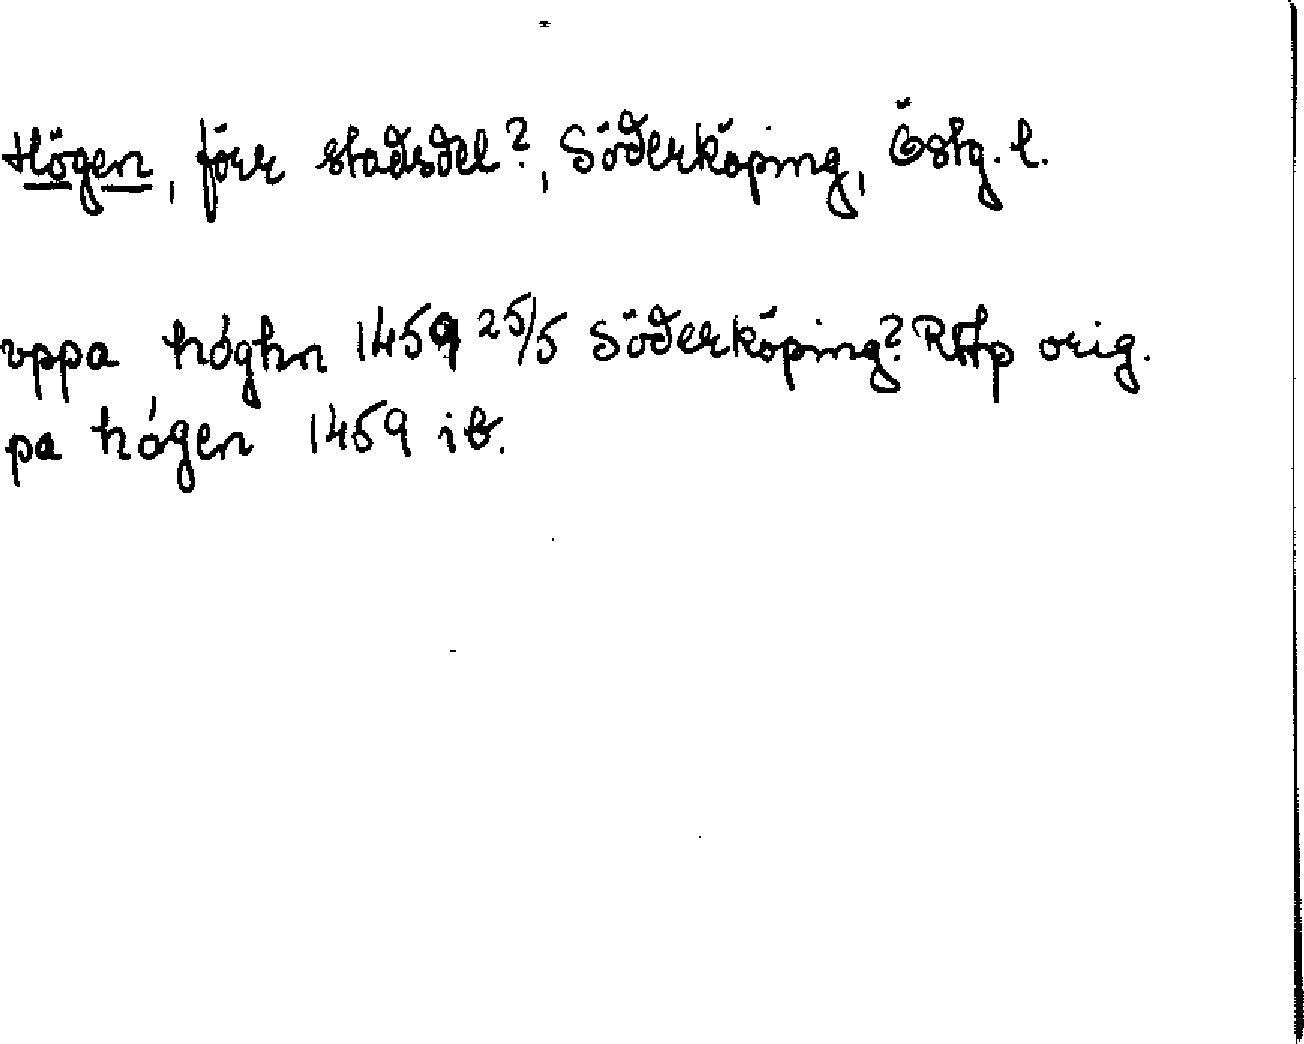 Högen, förr stadsdel?, Söderköping, Östg. l.
vppa hóghn 1459 25/5 Söderköping? RAp orig.
pa hógen 1459 ib.